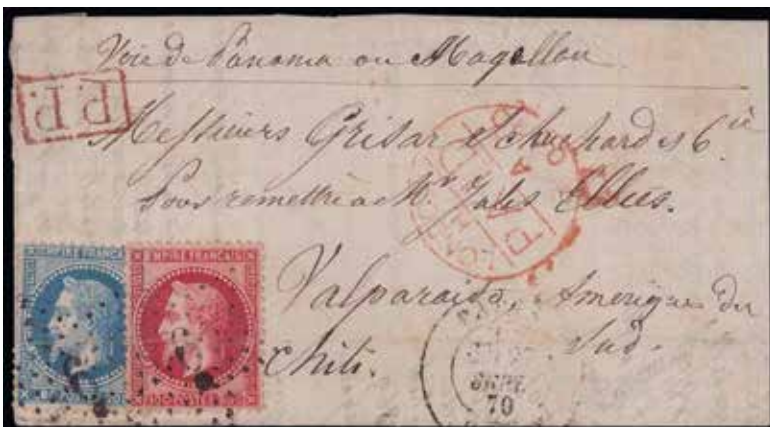 Voie de Panama ou Magellan
P.P.
Messieurs Grisar Schuchard & Cie
Pour remettre a Mr. Jules
Valparaiso, Amerique du
Sud.
Chili.
EMPIRE FRANC
EMPIRE FRANÇAIS
PAID
70